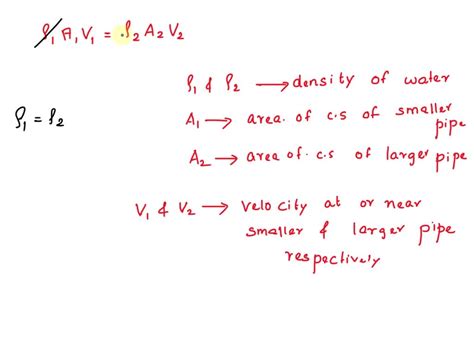 ρ₁ A₁ V₁ = ρ₂ A₂ V₂
ρ₁ & ρ₂ → density of water
ρ₁ = ρ₂
A₁ → area. of c.s of smaller pipe
A₂ → area of. c.s of larger pipe
V₁ & V₂ → velocity at or near
smaller & larger pipe
respectively